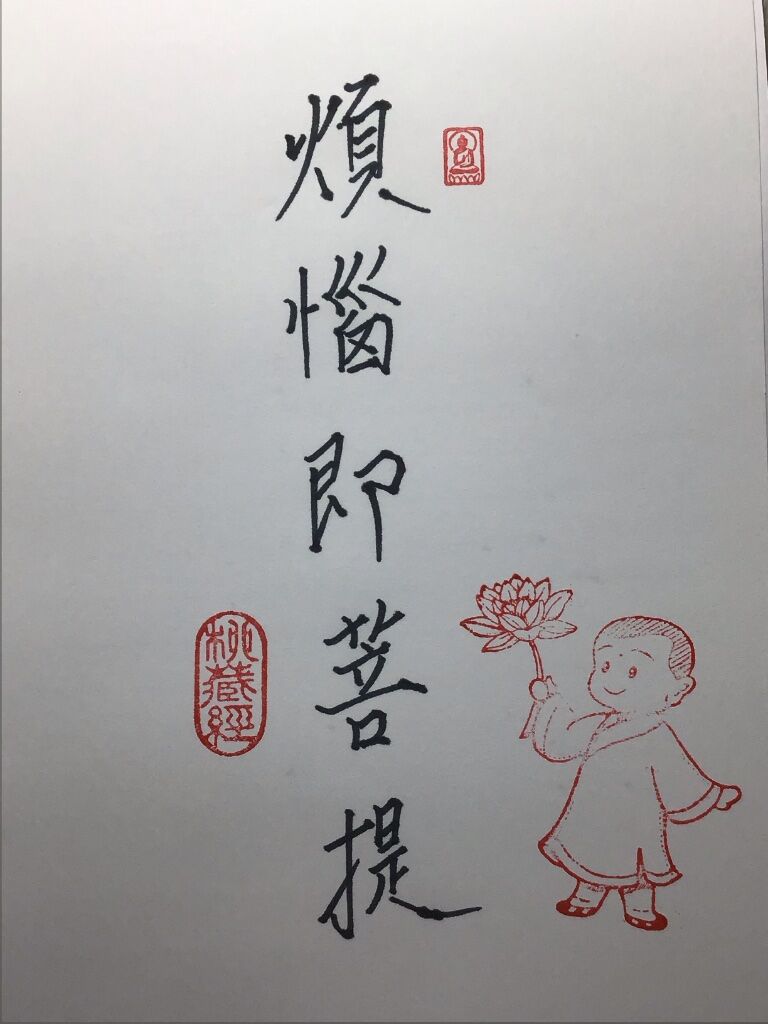 煩惱即菩提
桃藏經